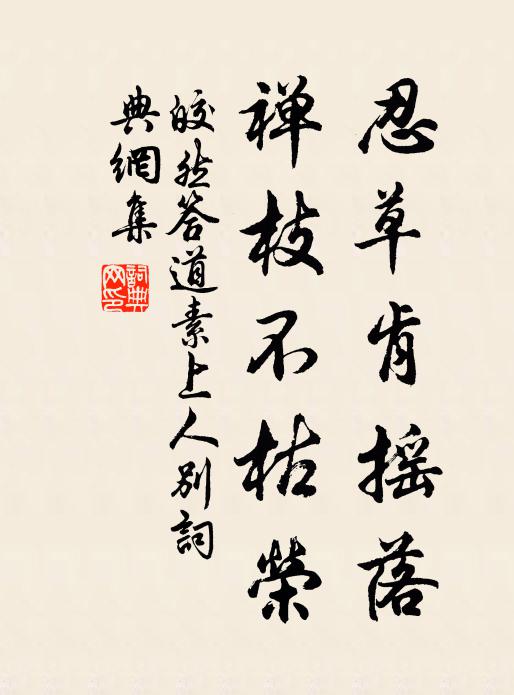 忍草肯摇落
禅枝不枯榮
皎然答道素上人别詞
典網集
詞典网印